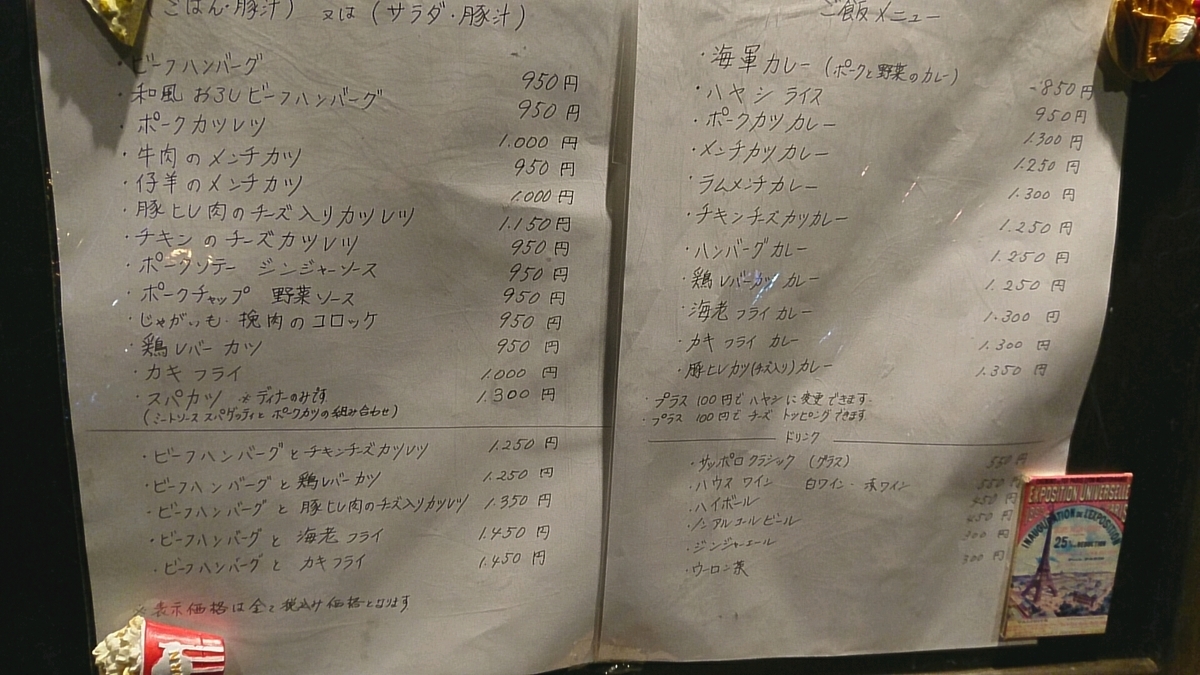 (ごはん・豚汁) 又は (サラダ・豚汁)
・ビーフハンバーグ 950円
・和風おろしビーフハンバーグ 950円
・ポークカツレツ 1.000円
・牛肉のメンチカツ 950円
・仔羊のメンチカツ 1.000円
・豚ヒレ肉のチーズ入りカツレツ 1.150円
・チキンのチーズカツレツ 950円
・ポークソテー ジンジャーソース 950円
・ポークチャップ 野菜ソース 950円
・じゃがいも・挽肉のコロッケ 950円
・鶏レバーカツ 950円
・カキフライ 1.000円
・スパカツ ※ディナーのみです 1.300円
(ミートソーススパゲッティとポークカツの組み合わせ)
・ビーフハンバーグとチキンチーズカツレツ 1.250円
・ビーフハンバーグと鶏レバーカツ 1.250円
・ビーフハンバーグと豚ヒレ肉のチーズ入りカツレツ 1.350円
・ビーフハンバーグと海老フライ 1.450円
・ビーフハンバーグとカキフライ 1.450円
※表示価格は全て税込み価格となります
ご飯メニュー
・海軍カレー(ポークと野菜のカレー) 850円
・ハヤシライス 950円
・ポークカツカレー 1.300円
・メンチカツカレー 1.250円
・ラムメンチカレー 1.300円
・チキンチーズカツカレー 1.250円
・ハンバーグカレー 1.250円
・鶏レバーカツカレー 1.250円
・海老フライカレー 1.300円
・カキフライカレー 1.300円
・豚ヒレカツ(チーズ入り)カレー 1.350円
・プラス100円でハヤシに変更できます。
・プラス100円でチーズトッピングできます。
ドリンク
・サッポロクラシック (グラス) 550円
・ハウスワイン 白ワイン・赤ワイン 550円
・ハイボール 450円
・ノンアルコールビール 450円
・ジンジャーエール 300円
・ウーロン茶 300円
EXPOSITION UNIVERSELLE
PARIS
INAUGURATION DE L'EXPOSITION
25%